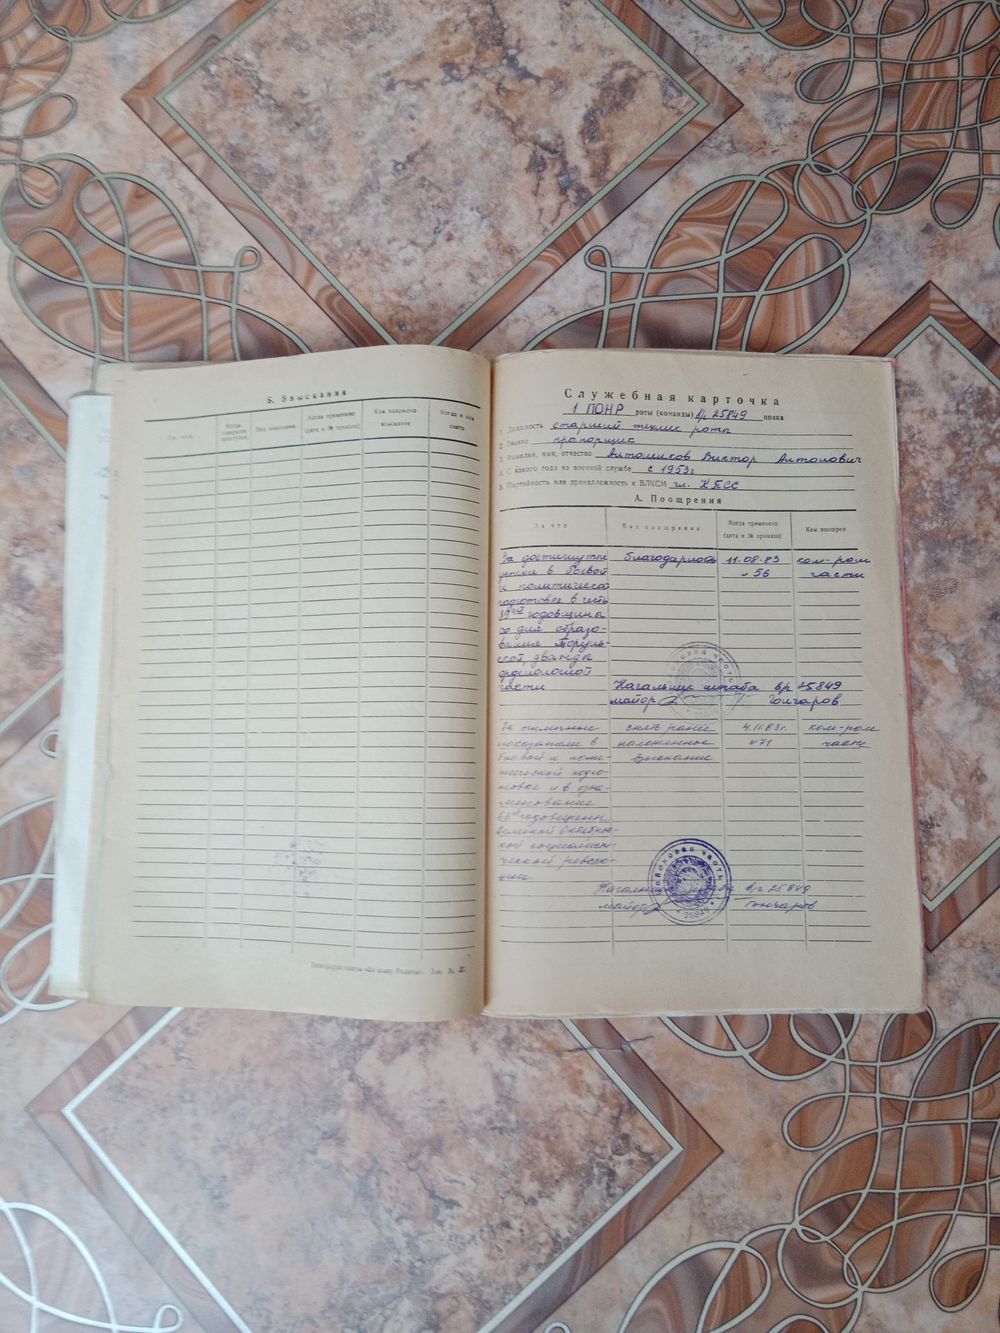 Б. Взыскания
За что
Когда совершен проступок
Вид взыскания
Когда применено (дата и № приказа)
Кем наложено взыскание
Когда и кем снято
Типография газеты «За славу Родины». Зак. №
Служебная карточка
1 ПОНР роты (команды) в/ч 25849 полка
1. Должность старший техник роты
2. Звание прапорщик
3. Фамилия, имя, отчество Виктор Антонович
4. С какого года на военной службе с 1953г
5. Партийность или принадлежность к ВЛКСМ чл. КПСС
А. Поощрения
За что
Вид поощрения
Когда применено (дата и № приказа)
Кем поощрен
За достигнутые
успехи в боевой
и политической
подготовке в честь
39ой годовщины
со дня образо-
вания
дважды
орденоносной
части
благодарность
11.08.83
№56
ком-ром
части
Начальник штаба в/ч 25849
майор Гончаров
За отличные
показатели в
боевой и поли-
тической подго-
товке и в озна-
менование
66ой годовщины
Великой Октябрьс-
кой социалисти-
ческой револю-
ции
снять ранее
наложенное
взыскание
4.11.83г.
№71
ком-ром
части
войсковая часть
* 25849 *
Начальник штаба в/ч 25849
майор Гончаров